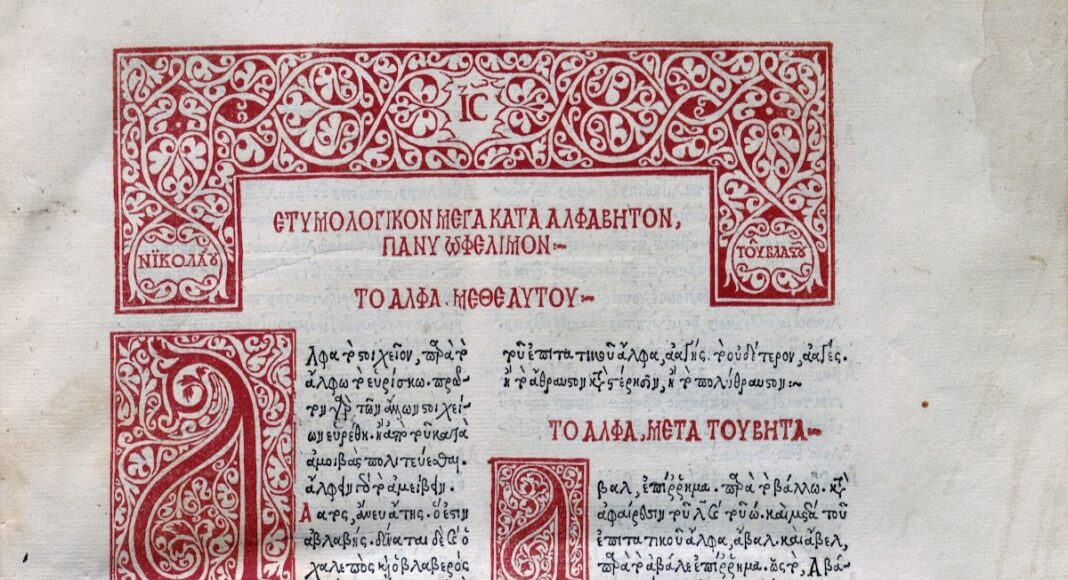 ΙϹ
ΝΪΚΟΛΆΟΥ
ΤΟΥ͂ ΒΛΑΣΤΟΥ͂
ΕΤΥΜΟΛΟΓΙΚΟΝ ΜΕΓΑ ΚΑΤΑ ΑΛΦΑΒΗΤΟΝ,
ΠΑΝΥ ΩΦΕΛΙΜΟΝ:~
ΤΟ ΑΛΦΑ. ΜΕΘ ΕΑΥΤΟΥ:~
Αλφα τὸ στοιχεῖον, παρὰ τὸ
ἄλφω τὸ εὑρίσκω. πρῶ-
τον γὰρ τῶν ἄλλων στοιχεί
ων εὑρέθη. ἢ ἀπὸ τοῦ κατὰ
ἀμοιβὰς πολιτεύεσθαι.
ἀλφεῖν τὸ ἀμείβειν.
Ἄατος, ἄνευ ἄτης. ὅ ἐστιν
ἀβλαβής. δύναται δὲ καὶ ὁ
χαλεπὸς καὶ ὁ βλαβερὸς
τοῦ ἐπιτατικοῦ ἄλφα, ἀαγής. τὸ οὐδέτερον, ἀαγές.
ἢ τὸ ἄθραυστον καὶ στερρὸν, ἢ τὸ πολύθραυστον:~
ΤΟ ΑΛΦΑ, ΜΕΤΑ ΤΟΥ ΒΗΤΑ~
Αβαλ, ἐπίῤῥημα. παρὰ τὸ βάλλω. καὶ
ἀφαιρέσει τοῦ λ καὶ τοῦ ω. καὶ μετὰ τοῦ
ἐπιτατικοῦ ἄλφα, ἄβαλ. καὶ ἄβελ,
παρὰ τὸ ἄβαλε ἐπίῤῥημα. ὡς τὸ, Ἀβά-